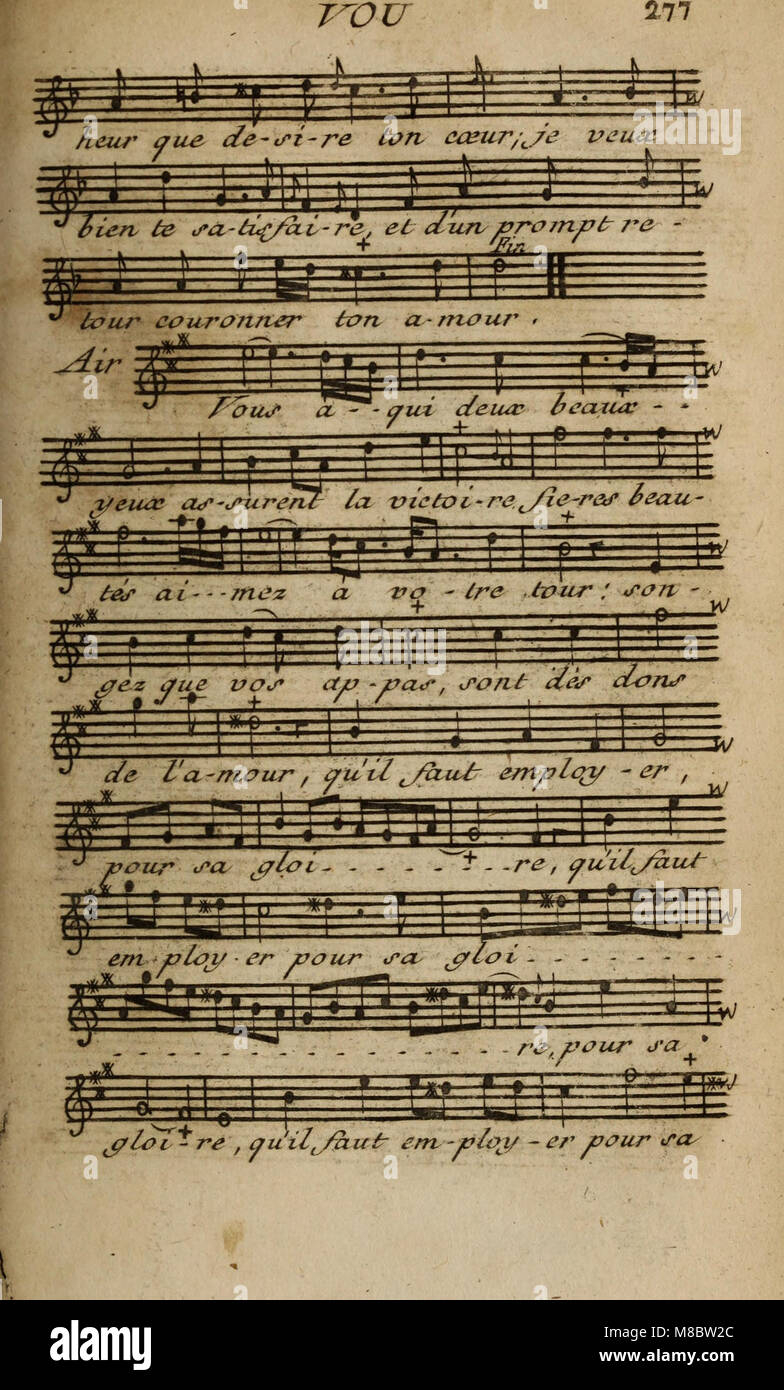 VOU 277
heur que de-si-re ton cœur; je veux
bien te sa-tisfai-re, et d'un prompt re-
Fin
tour couronner ton a-mour.
Air
Vous a--qui deux beaux--
yeux as-surent la victoi-re, fie-res beau-
tés ai---mez à vo-tre tour: son-
gez que vos ap-pas, sont des dons
de l'a-mour, qu'il faut employ-er,
pour sa gloi-------re, qu'il faut
em-ploy-er pour sa gloi---------
------------------re, pour sa
gloi-re, qu'il faut em-ploy-er pour sa
alamy
Image ID: M8BW2C
www.alamy.com